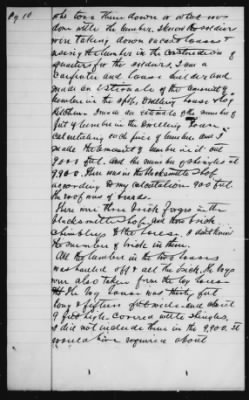 Pg 10
who tore them down or what was
done with the lumber. I know the soldiers
were taking down vacant houses &
using the lumber in the construction of
quarters for the soldiers, I am a
Carpenter and house builder and
made an estimate of the quantity of
lumber in the shop, dwelling house & log
Kitchen. I made an estimate of the number of
feet of lumber in the dwelling house
calculating each piece of lumber and I
made the amount of lumber in it at
9000 feet. And the number of shingles at
9,900. There was in the blacksmith shop
according to my calculation 900 feet
the roof was of boards.
There were three brick forges in the
blacksmith shop, and two brick
chimneys to the house. I don't know
the number of brick in them.
All the lumber in the two houses
was hauled off & all the brick. The logs
were also taken from the log house
The log house was thirty feet
long & fifteen feet wide and about
9 feet high. Covered with shingles,
I did not include them in the 9,900. It
would have required about